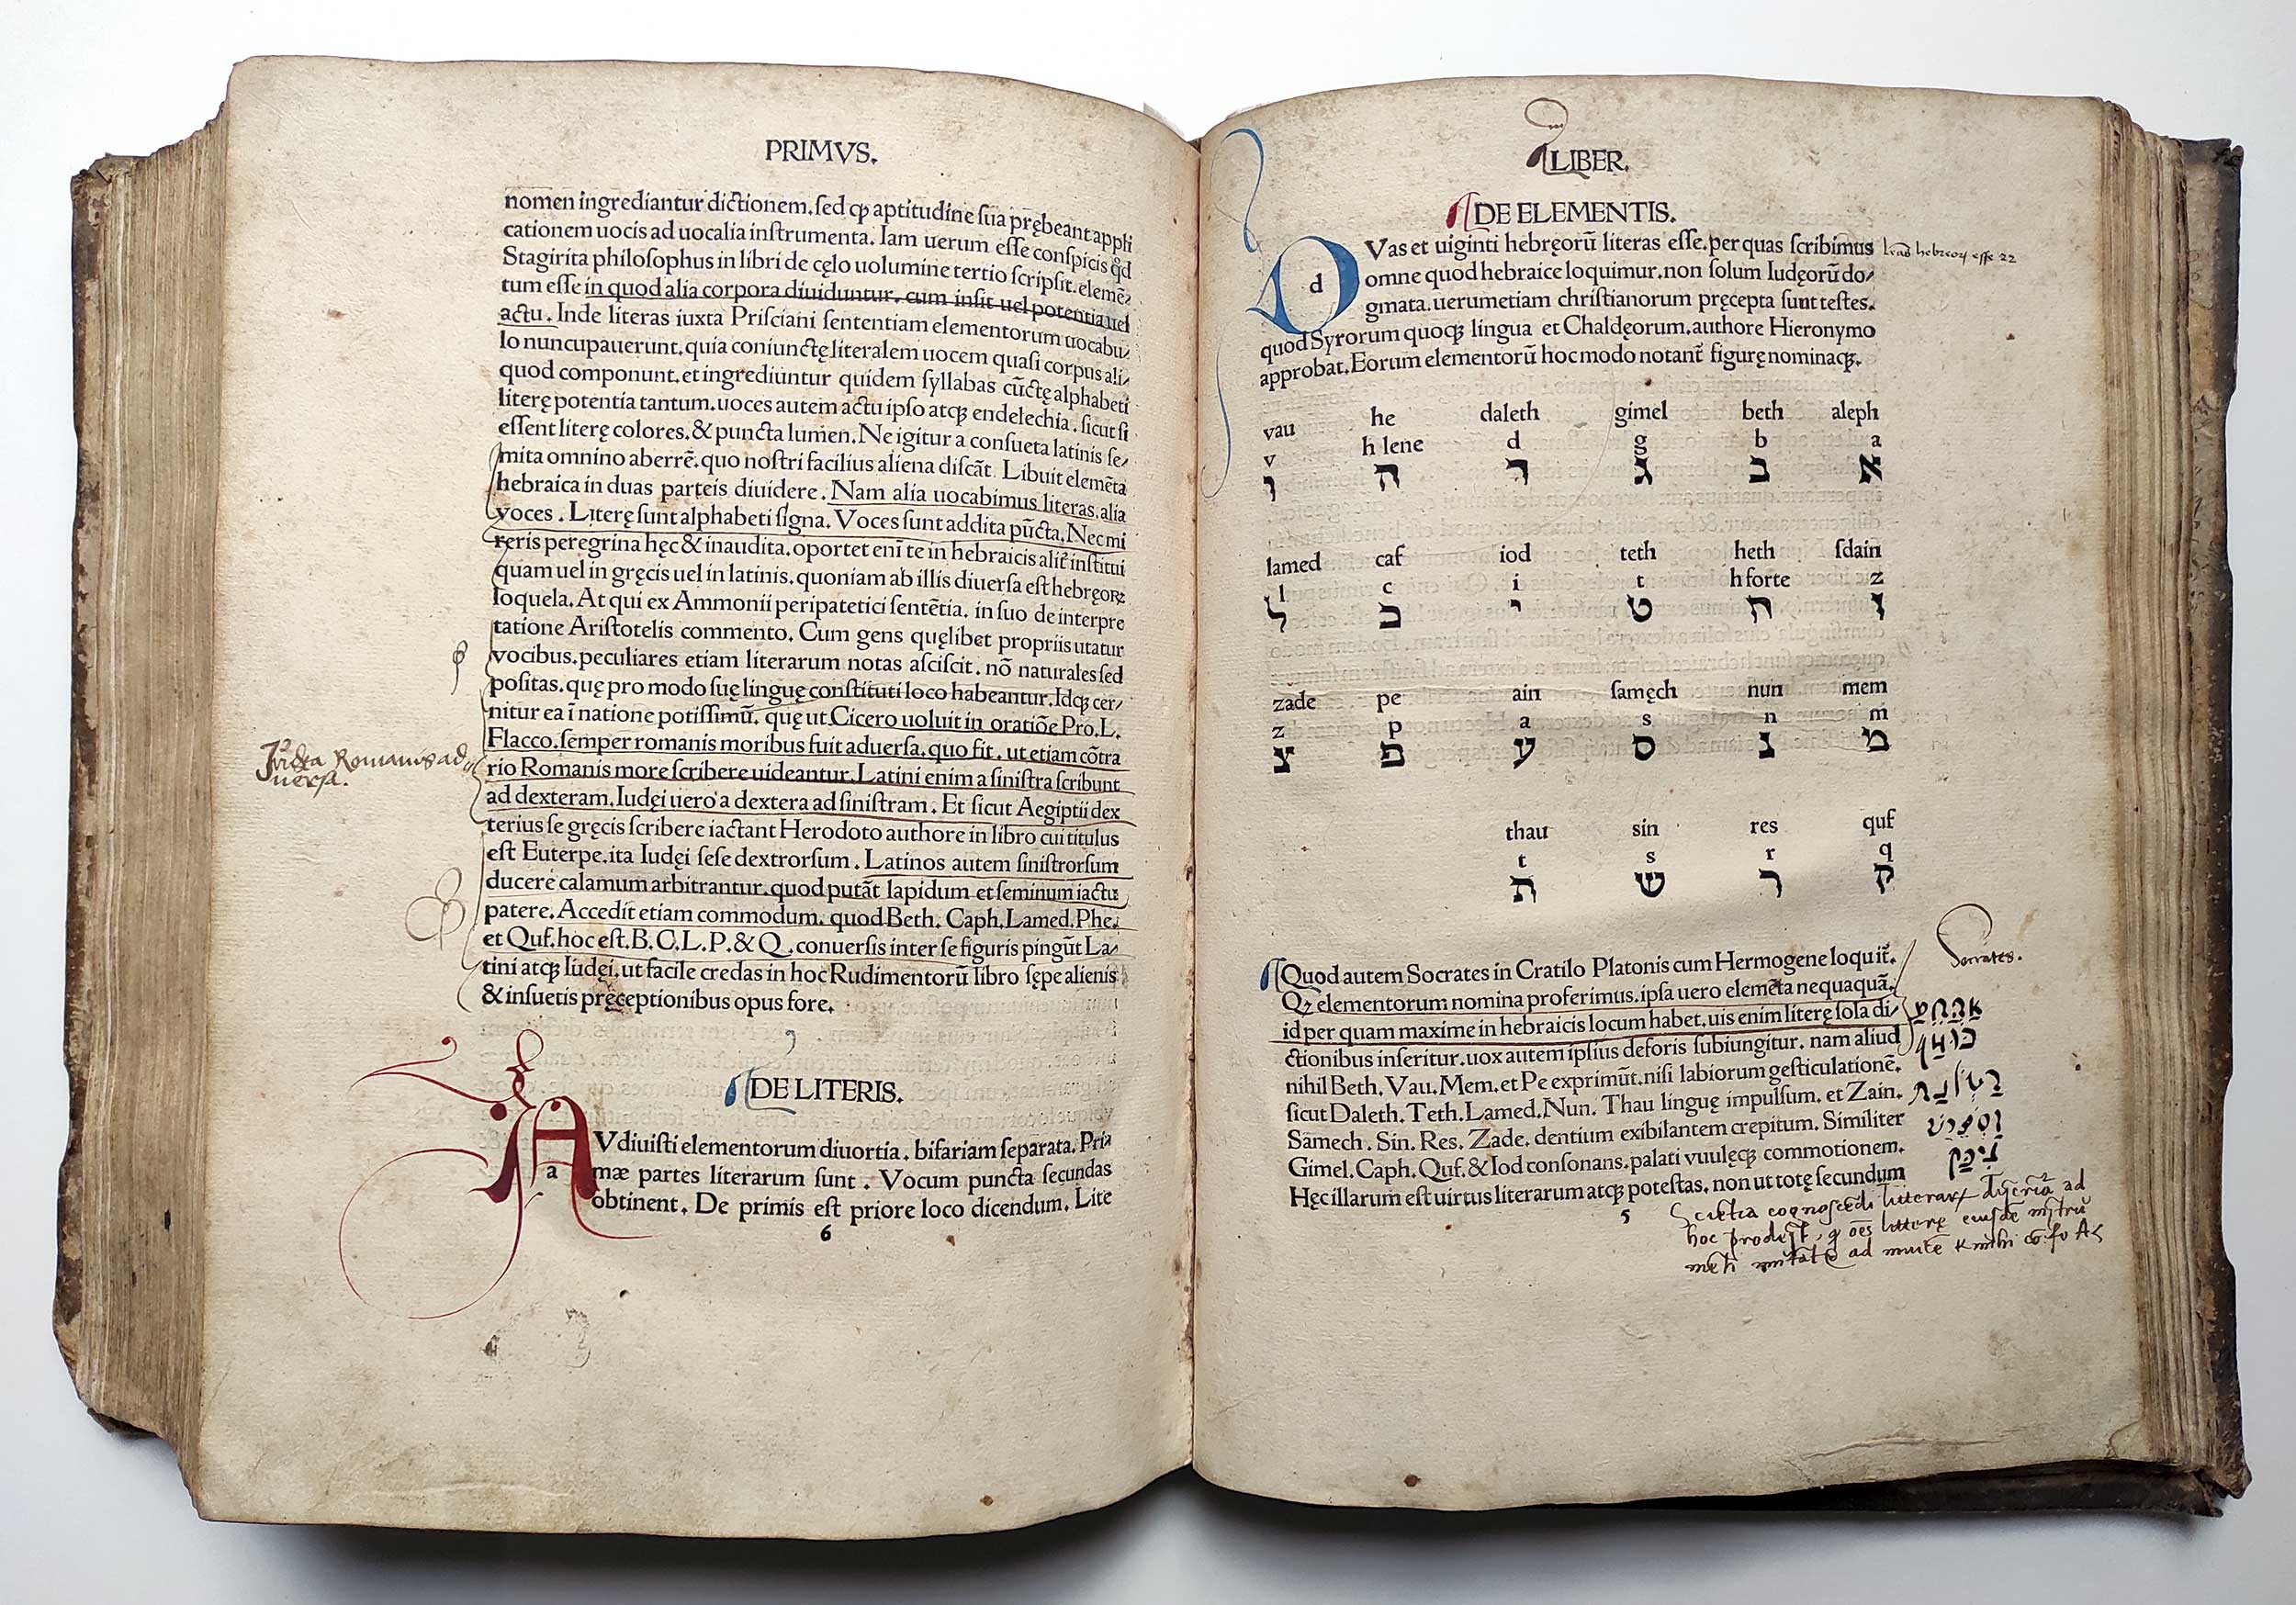 LIBER.
DE ELEMENTIS.
DVas et uiginti hebręorū literas esse.per quas scribimus
omne quod hebraice loquimur.non solum Iudęorū do⸗
gmata.uerumetiam christianorum pręcepta sunt testes.
quod Syrorum quoqȝ lingua et Chaldęorum.authore Hieronymo
approbat.Eorum elementorū hoc modo notant᷑ figurę nominaqȝ.
vau he daleth gimel beth aleph
v h lene d g b a
א ב ג ד ה ו
lamed caf iod teth heth sdain
l c i t h forte z
ז ח ט י כ ל
zade pe ain samęch nun mem
z p a s n m
מ נ ס ע פ צ
thau sin res quf
t s r q
ק ר ש ת
Quod autem Socrates in Cratilo Platonis cum Hermogene loquit᷑.
Qȝ elementorum nomina proferimus.ipsa uero elemēta nequaquā.
id per quam maxime in hebraicis locum habet.uis enim literę sola di⸗
ctionibus inseritur.uox autem ipsius deforis subiungitur. nam aliud
nihil Beth. Vau. Mem.et Pe exprimūt.nisi labiorum gesticulationē.
sicut Daleth. Teth.Lamed.Nun. Thau linguę impulsum. et Zain.
Samech. Sin. Res. Zade. dentium exibilantem crepitum. Similiter
Gimel.Caph.Quf.& Iod consonans.palati vuulęqȝ commotionem.
Hęc illarum est uirtus literarum atqȝ potestas. non ut totę secundum
5
hebreorū esse 22
Socrates.
PRIMVS.
nomen ingrediantur dictionem.sed ꝙ aptitudine sua prębeant appli
cationem uocis ad uocalia instrumenta. Iam uerum esse conspicis qd
Stagirita philosophus in libri de cęlo uolumine tertio scripsit. elemē⸗
tum esse in quod alia corpora diuiduntur. cum insit uel potentia uel
actu. Inde literas iuxta Prisciani sententiam elementorum uocabu⸗
lo nuncupauerunt.quia coniunctę literalem uocem quasi corpus ali⸗
quod componunt.et ingrediuntur quidem syllabas cūctę alphabeti
literę potentia tantum.uoces autem actu ipso atqȝ endelechia. sicut si
essent literę colores.& puncta lumen. Ne igitur a consueta latinis se⸗
mita omnino aberrē.quo nostri facilius aliena discāt. Libuit elemēta
hebraica in duas parteis diuidere. Nam alia uocabimus literas.alia
voces. Literę sunt alphabeti signa. Voces sunt addita pūcta. Nec mi
reris peregrina hęc & inaudita.oportet enī te in hebraicis alit᷑ institui
quam uel in gręcis uel in latinis.quoniam ab illis diuersa est hebręoꝝ
loquela. At qui ex Ammonii peripatetici sentētia. in suo de interpre
tatione Aristotelis commento. Cum gens quęlibet propriis utatur
vocibus.peculiares etiam literarum notas asciscit. nō naturales sed
positas.quę pro modo suę linguę constituti loco habeantur. Idqȝ cer⸗
nitur ea ī natione potissimū. quę ut Cicero uoluit in oratiōe Pro.L.
Flacco.semper romanis moribus fuit aduersa.quo fit. ut etiam cōtra
rio Romanis more scribere uideantur. Latini enim a sinistra scribunt
ad dexteram.Iudęi uero a dextera ad sinistram. Et sicut Aegiptii dex
terius se gręcis scribere iactant Herodoto authore in libro cui titulus
est Euterpe.ita Iudęi sese dextrorsum. Latinos autem sinistrorsum
ducere calamum arbitrantur.quod putāt lapidum et seminum iactu
patere. Accedit etiam commodum. quod Beth. Caph.Lamed.Phe.
et Quf.hoc est.B.C.L.P.& Q.conuersis inter se figuris pingūt La⸗
tini atqȝ Iudęi.ut facile credas in hoc Rudimentorū libro sępe alienis
& insuetis pręceptionibus opus fore.
DE LITERIS.
AVdiuisti elementorum diuortia. bifariam separata. Pri⸗
mæ partes literarum sunt. Vocum puncta secundas
obtinent. De primis est priore loco dicendum. Lite
6
Judęa Romanis ad
uersa.